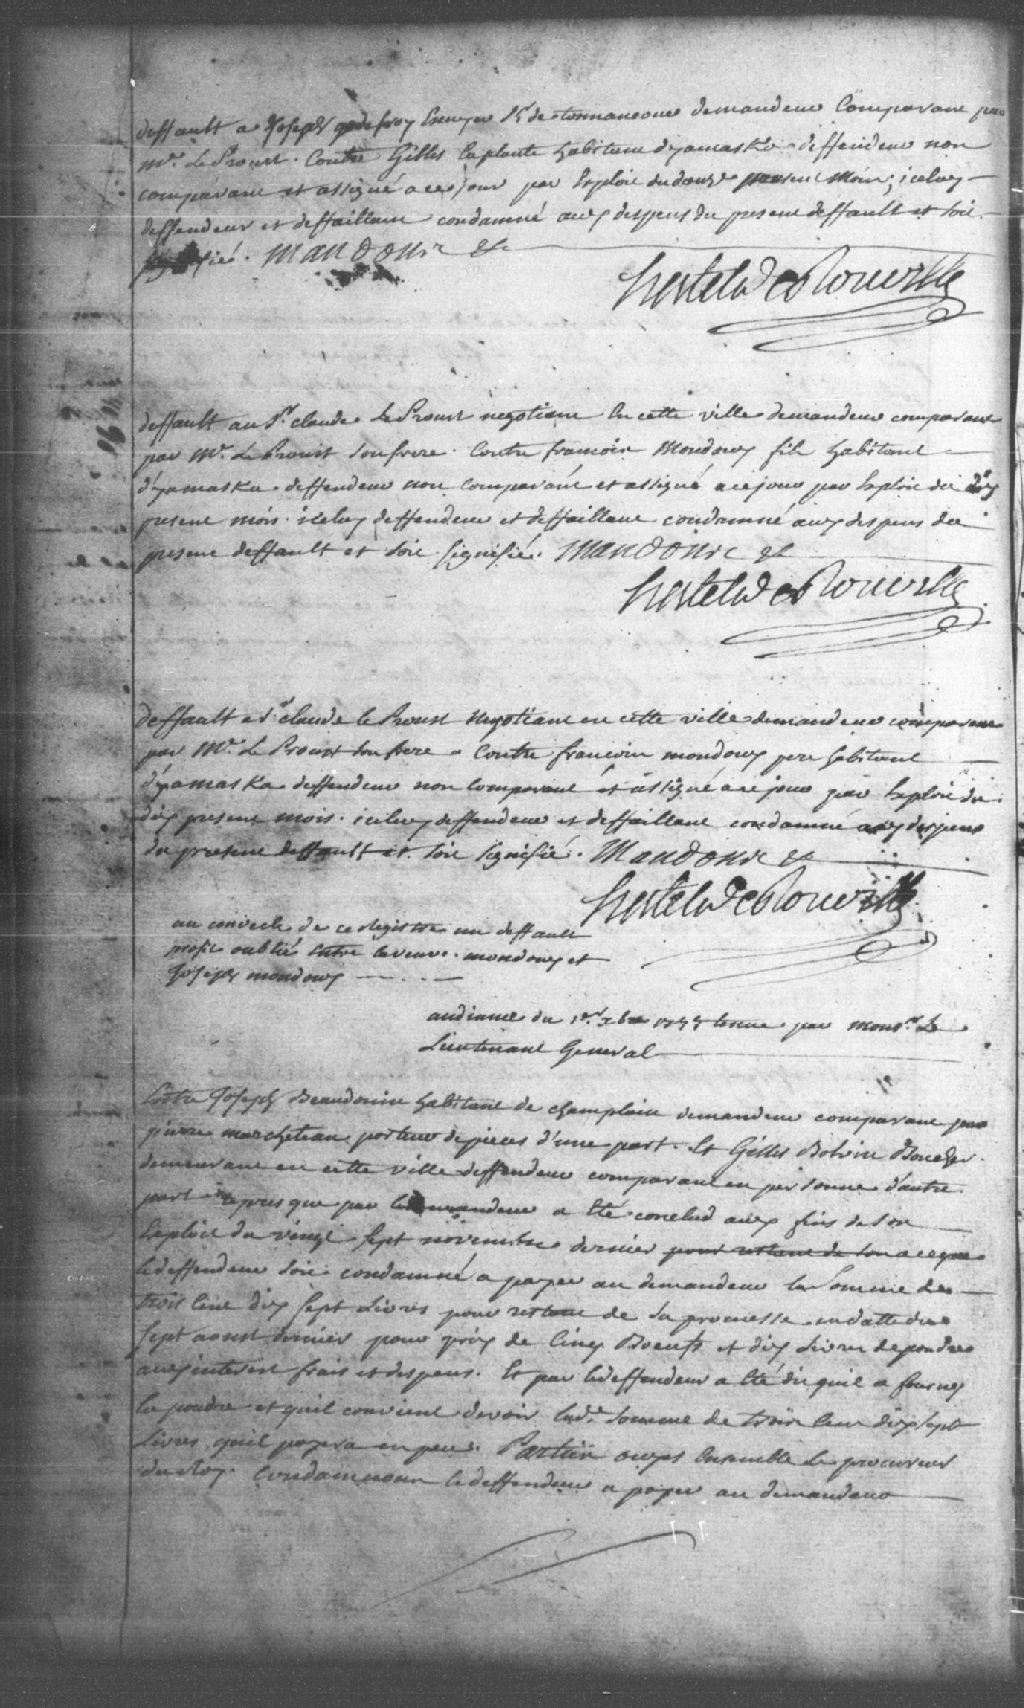 deffault a Joseph godefroy Ecuyer Sr de tonnancour demandeur Comparant par
Mr. Le Proust. Contre Gilles laplante habitant dyamaska deffendeur non
comparant et assigné a ce jour par Exploit du douze present Mois; iceluy
deffendeur et deffaillant condamné aux despens du present deffault et soit
signifié. Mandons &c
Hertel de Rouville
deffault au Sr. claude Le Proust negotiant En cette ville demandeur comparant
par Mr. Le Proust son frere. Contre francois Mondoux fils habitant
d'yamaska deffendeur non Comparant et assigné a ce jour par Exploit du dix
present mois. iceluy deffendeur et deffaillant condamné aux despens du
present deffault et soit signifié. Mandons &c
Hertel de Rouville
deffault a Sr claude le Proust Negotiant en cette ville demandeur comparant
par Mr. Le Proust son frere. Contre francois mondoux pere habitant
d'yamaska deffendeur non Comparant et assigné a ce jour par Exploit du
dix present mois. iceluy deffendeur et deffaillant condamné aux despens
du present deffault et soit signifié. Mandons &c
Hertel de Rouville
au convercle de ce Registre un deffault
profit oublié Entre la veuve mondoux et
Joseph mondoux
audiance du 1er. Xbre tenue par monsr. Le
Lieutenant General
Entre Joseph Beaudouin habitant de champlain demandeur comparant par
pierre marcheteau porteur de pieces d'une part. Et Gilles Bolvin Boucher
demeurant en cette ville deffendeur comparant en personne d'autre
part apres que par le demandeur a Eté conclud aux fins de son
Exploit du vingt sept novembre dernier pour restant de son a ce que
le deffendeur soit condamné a payer au demandeur la Somme de
trois Cent dix Sept Livres pour restant de Sa promesse en datte du
Sept aoust dernier pour prix de Cinq Boeufs et dix Livres de poudre
aux interest frais et despens. Et par le deffendeur a Eté dit quil a fourny
la poudre et quil convient devoir lade. Somme de trois Cent dix Sept
Livres quil payera en peu. Parties ouyes Ensemble Le procureur
du Roy. Condamnons le deffendeur a payer au demandeur